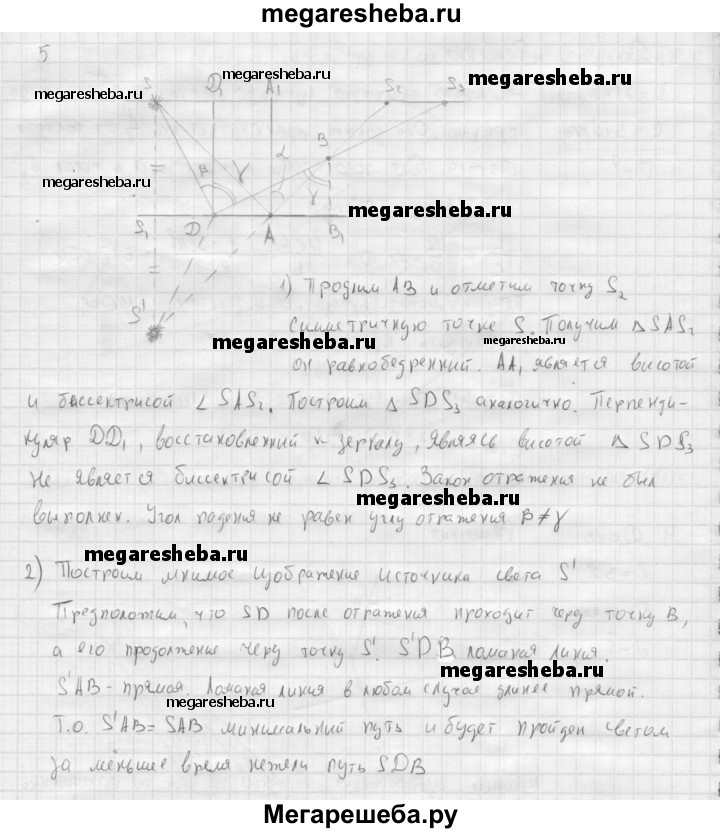 megaresheba.ru
5
S D₁ A₁ S₂ S₃
megaresheba.ru
megaresheba.ru
B
α
β γ γ
megaresheba.ru
megaresheba.ru
S₁ D A B₁
S'
1) Продлим AB и отметим точку S₂
megaresheba.ru
симметричную точке S. Получим △SAS₂
megaresheba.ru
он равнобедренный. AA₁ является высотой
и биссектрисой ∠SAS₂. Построим △SDS₃ аналогично. Перпенди-
куляр DD₁, восстановленный к зеркалу, являясь высотой △SDS₃
не является биссектрисой ∠SDS₃. Закон отражения не был
megaresheba.ru
выполнен. Угол падения не равен углу отражения β≠γ
megaresheba.ru
2) Построим мнимое изображение источника света S'
Предположим, что SD после отражения проходит через точку B,
а его продолжение через точку S'. S'DB ломаная линия.
megaresheba.ru
S'AB - прямая. Ломаная линия в любом случае длинее прямой.
megaresheba.ru
Т.о. S'AB = SAB минимальний путь и будет пройден светом
за меньшее время нежели путь SDB
Мегарешеба.ру